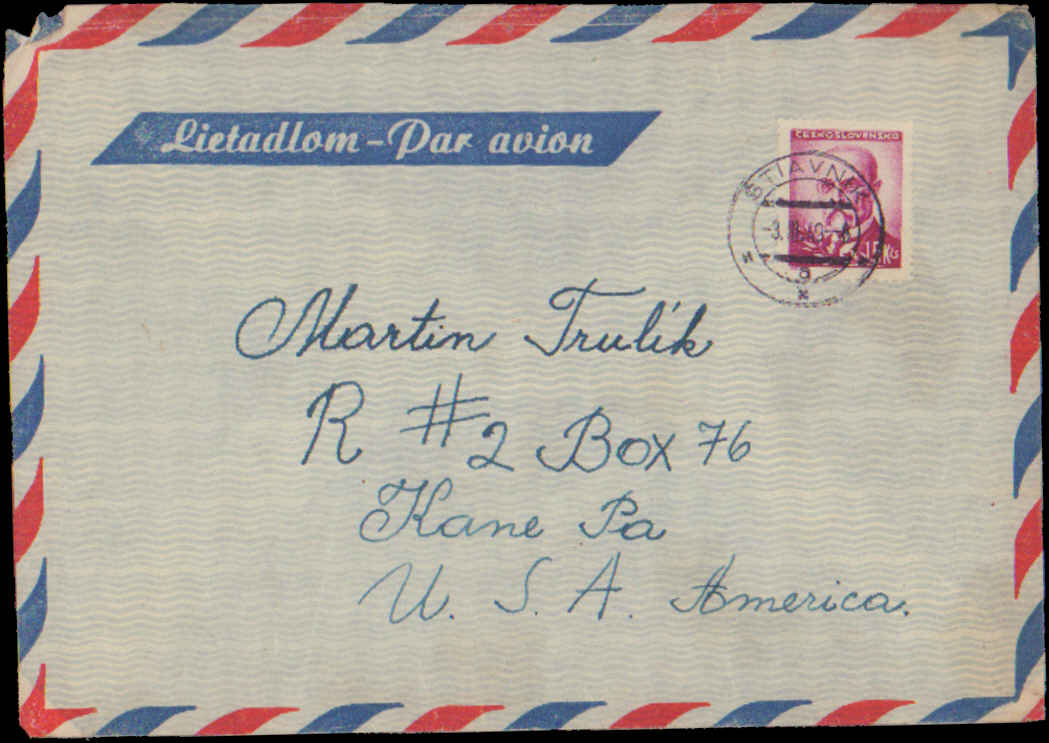 Lietadlom - Par avion
ČESKOSLOVENSKO
ŠTIAVNIK
a
15 Kčs
Martin Trulík
R #2 Box 76
Kane Pa
U. S. A. America.